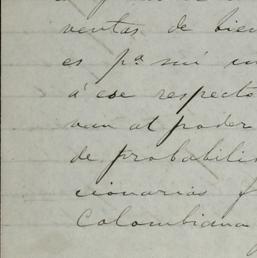 ventas de bien
es pª mí un
á ese respecto
van al poder
de probabili
cionarias f
Colombiana